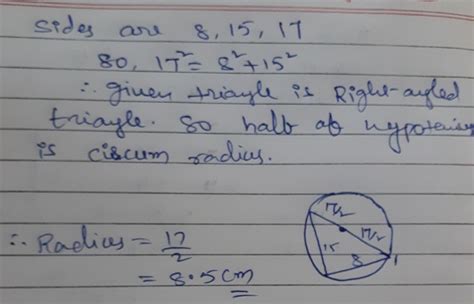 sides are 8, 15, 17
80, 17² = 8² + 15²
∴ given triayle is Right-agled
triayle. So half of hypotenius
is circum radius.
∴ Radius = 17/2
= 8.5cm
17/2
17/2
15
8